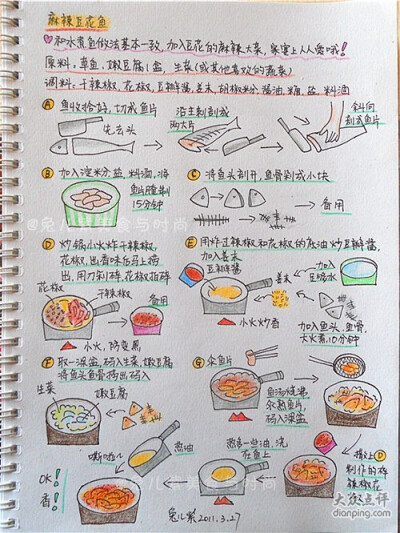 麻辣豆花鱼
和水煮鱼做法基本一致,加入豆花的麻辣大菜,家宴上人人爱哦!
原料:草鱼,嫩豆腐1盒,生菜(或其他喜欢的蔬菜)
调料:干辣椒,花椒,豆瓣酱,姜末,胡椒粉,酱油,糖,盐,料酒
A 鱼收拾好,切成鱼片
先去头
沿主刺剖成两大片
斜向割成鱼片
B 加入淀粉,盐,料酒,将鱼片腌制15分钟
C 将鱼头剖开,鱼骨剁成小块
备用
D 炒锅小火炸干辣椒,花椒,出香味后马上捞出,用刀剁碎,花椒拍碎
花椒
干辣椒
备用
小火,防变黑
E 用炸过辣椒和花椒的底油炒豆瓣酱,加入姜末
豆瓣酱
姜末
小火炒香
加入
加入鱼头,鱼骨,大火煮10分钟
F 取一深盆,码入生菜,嫩豆腐
将鱼头鱼骨捞出码入
生菜
嫩豆腐
G 氽鱼片
鱼汤烧沸,氽熟鱼片,码入深盆
撒上D制作的碎辣椒花
热多一些油,浇在鱼上
热油
嘶啦~
OK!
香!
兔儿菜 2011.3.27
大众点评
dianping.com